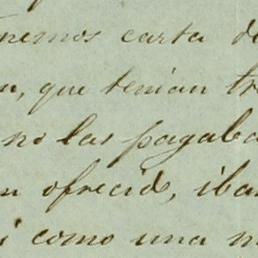 nemos carta de
n, que tenian tr
no las pagaba
n ofrecido, iba
i como una m